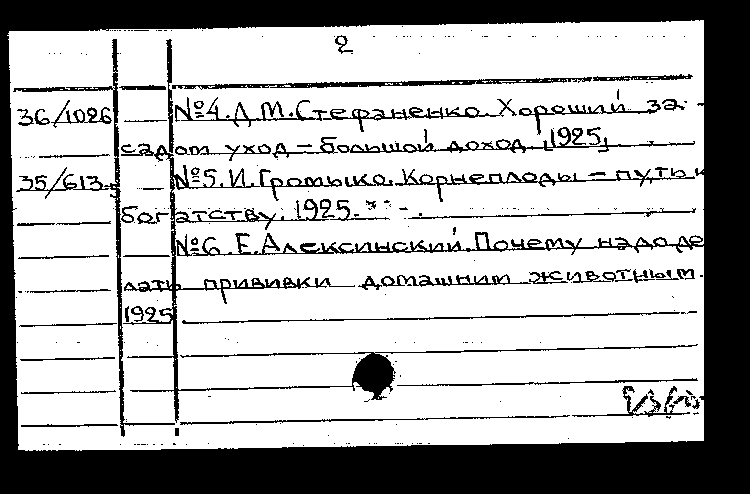 2
36/1026 №4. Д.М. Стефаненко. Хороший за
садом уход – большой доход. [1925].
35/613-5 №5. И. Громыко. Корнеплоды – путь к
богатству. 1925.
№6. Е. Алексинский. Почему надо де
лать прививки домашним животным.
1925.